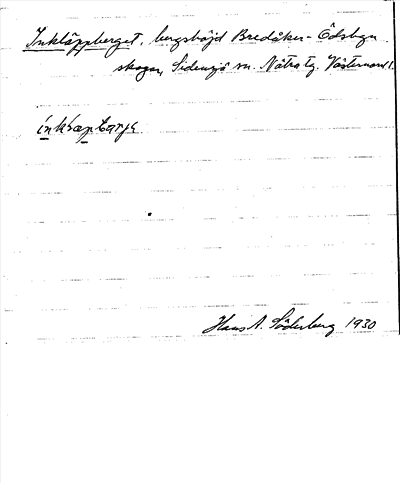 Inkläppberget, bergshöjd Bredåker - Ödsbyn
skogen, Sidensjö sn. Nätra tg. Västernorrl.
Hans A. Söderberg 1930